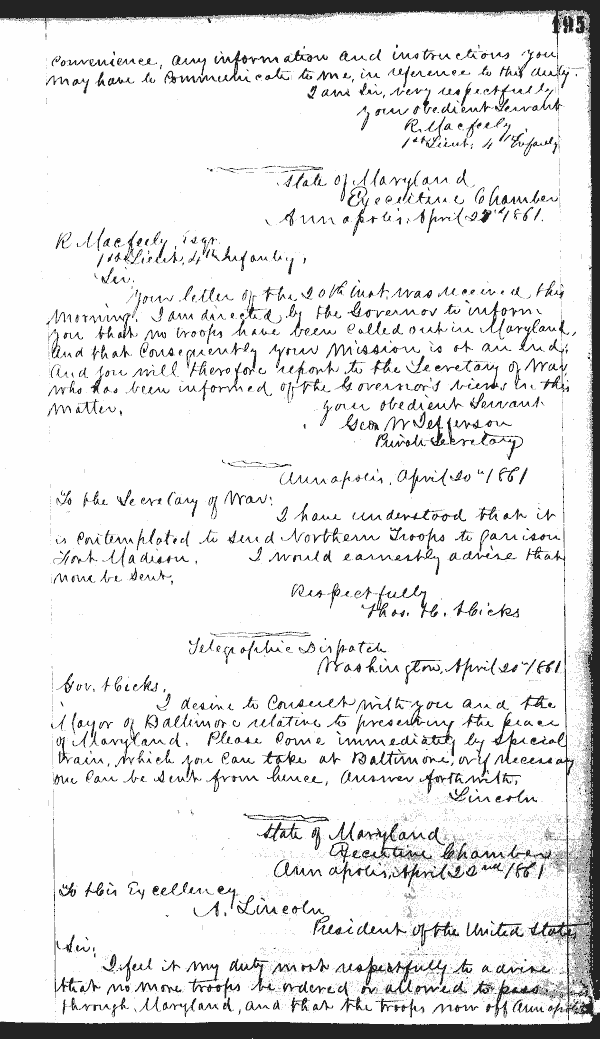 195
convenience, any information and instructions you
may have to communicate to me, in reference to this duty.
I am Sir, very respectfully
your obedient Servant
R. Macfeely,
1st Lieut, 4th Infanty
State of Maryland
Executive Chamber
Annapolis, April 1861.
R Macfeely, Esqr
1st Lieut, 4th Infantry,
Sir,
Your letter of the 20th inst. was received this
morning. I am directed by the Governor to inform
you that no troops have been called out in Maryland,
and that consequently your mission is at an end.
And you will therefore report to the Secretary of War,
who has been informed of the Governor's views in this
matter.
your obedient Servant
Geo W Jefferson
Private Secretary
Annapolis, April 20th 1861
To the Secretary of War:
I have understood that it
is contemplated to send Northern Troops to garrison
Fort Madison. I would earnestly advise that
none be sent,
Respectfully
Thos. H. Hicks
Telegraphic Dispatch
Washington, April 20th 1861
Gov. Hicks,
I desire to consult with you and the
Mayor of Baltimore relative to preserving the peace
of Maryland. Please come immediately by special
train, which you can take at Baltimore, or if necessary
one can be sent from hence, Answer forthwith,
Lincoln
State of Maryland
Executive Chamber
Annapolis, April 22nd 1861
To His Excellency
A. Lincoln
President of the United States
Sir,
I feel it my duty most respectfully to advise
that no more troops be ordered or allowed to pass
through Maryland, and that the troops now off Annapolis